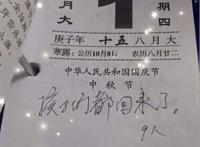 月大
期四
庚子年 十五 八月大
寒露：公历10月8日 农历八月廿二
中华人民共和国国庆节
中秋节
孩子们都回来了。
9人